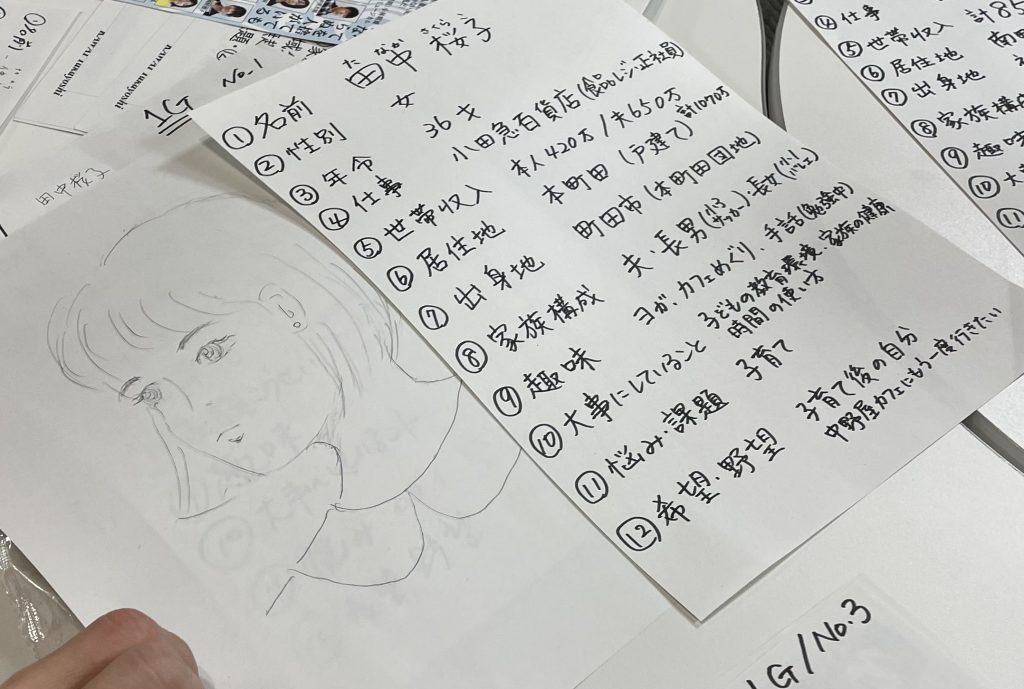 1G
No-1
KAWAI Takayoshi
KAWAI Takayoshi
田中桜子
たなか さくら
① 名前 田中 桜子
② 性別 女
③ 年令 36才
④ 仕事 小田急百貨店(食品レジ・正社員)
⑤ 世帯収入 本人420万/夫650万 計1070万
⑥ 居住地 本町田(戸建て)
⑦ 出身地 町田市(本町田団地)
⑧ 家族構成 夫・長男(小3 サッカー)・長女(小1 バレエ)
⑨ 趣味 ヨガ、カフェめぐり、手話(勉強中)
⑩ 大事にしていること 子どもの教育環境、家族の健康
時間の使い方
⑪ 悩み・課題 子育て
⑫ 希望・野望 子育て後の自分
中野屋カフェにもう一度行きたい
④ 仕事
⑤ 世帯収入 計85
⑥ 居住地
⑦ 出身地
⑧ 家族構成
⑨ 趣味
⑩ 大
⑪
1G/No.3